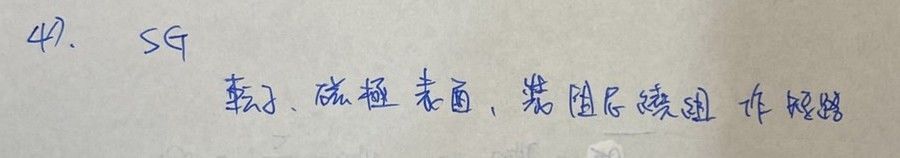 47. SG
転子、磁極表面、裝阻尼繞組 作短路